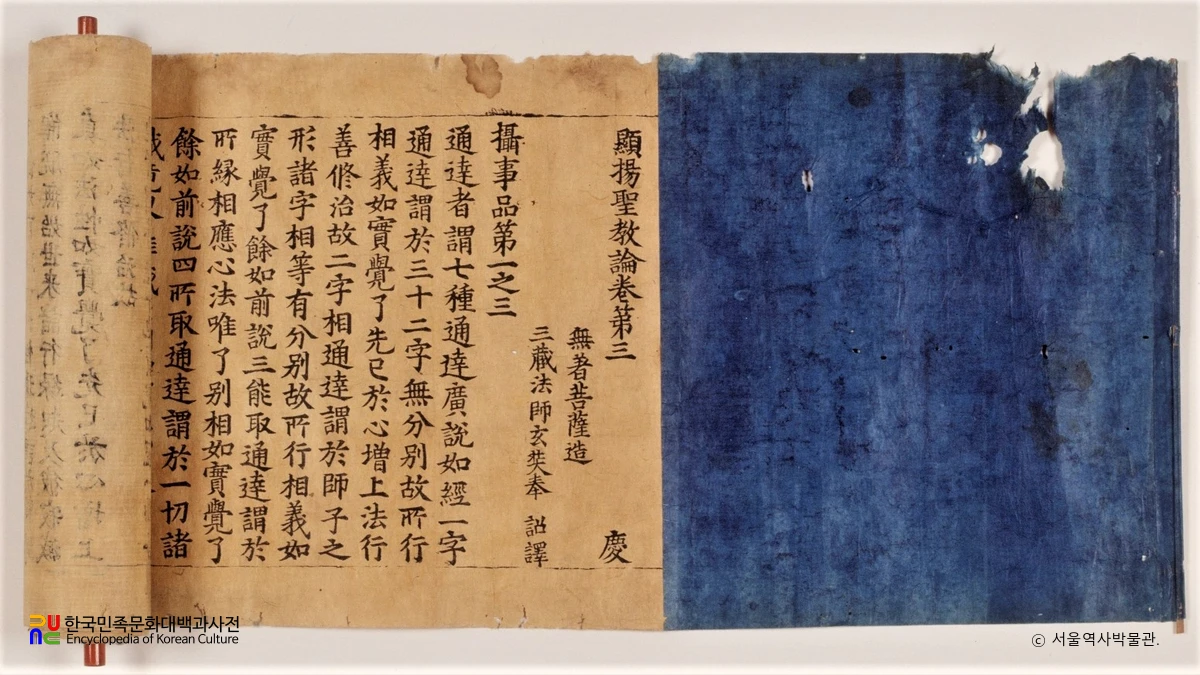 顯揚聖教論卷第三
慶
無著菩薩造
三藏法師玄奘奉 詔譯
攝事品第一之三
通達者謂七種通達廣說如經一字
通達謂於三十二字無分別故所行
相義如實覺了先已於心増上法行
善修治故二字相通達謂於師子之
形諸字相等有分别故所行相義如
實覺了餘如前說三能取通達謂於
所縁相應心法唯了别相如實覺了
餘如前說四所取通達謂於一切諸
한국민족문화대백과사전
Encyclopedia of Korean Culture
ⓒ 서울역사박물관.